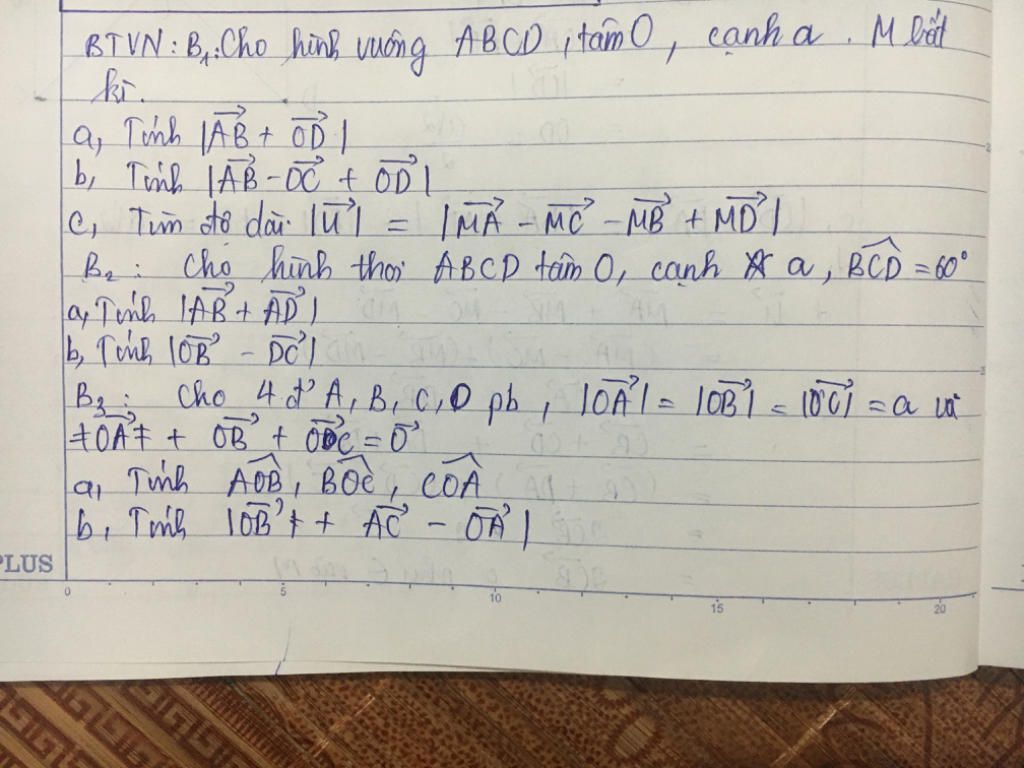 BTVN: B₁: Cho hình vuông ABCD, tâm O, cạnh a. M bất
kì.
a, Tính |AB→ + OD→|
b, Tính |AB→ - OC→ + OD→|
c, Tìm độ dài |U→| = |MA→ - MC→ - MB→ + MD→|
B₂: Cho hình thoi ABCD tâm O, cạnh a, BCD^ = 60°
a, Tính |AB→ + AD→|
b, Tính |OB→ - DC→|
B₃: Cho 4 đ' A, B, C, O pb, |OA→| = |OB→| = |OC→| = a và
OA→ + OB→ + OC→ = O→
a, Tính AOB^, BOC^, COA^
b, Tính |OB→ + AC→ - OA→|
PLUS
0 5 10 15 20